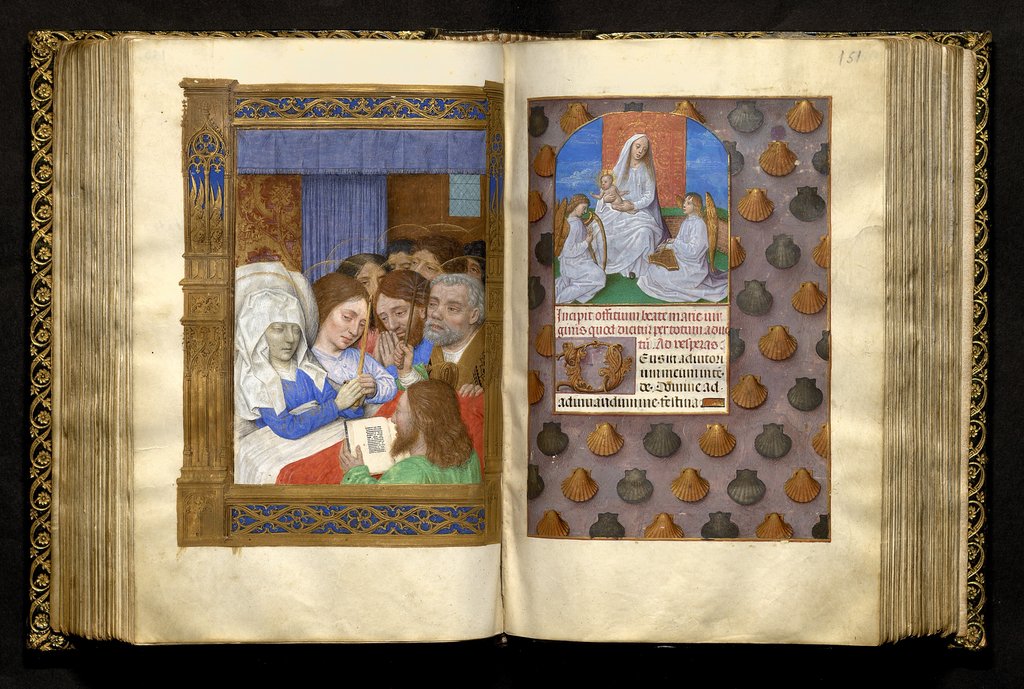 151
Incipit officium beate marie uir
ginis quod dicitur per totum aduē
tū. Ad vesperas.
Deus in adiutori
um meum inte
de. Domine ad
adiuuandum me festina